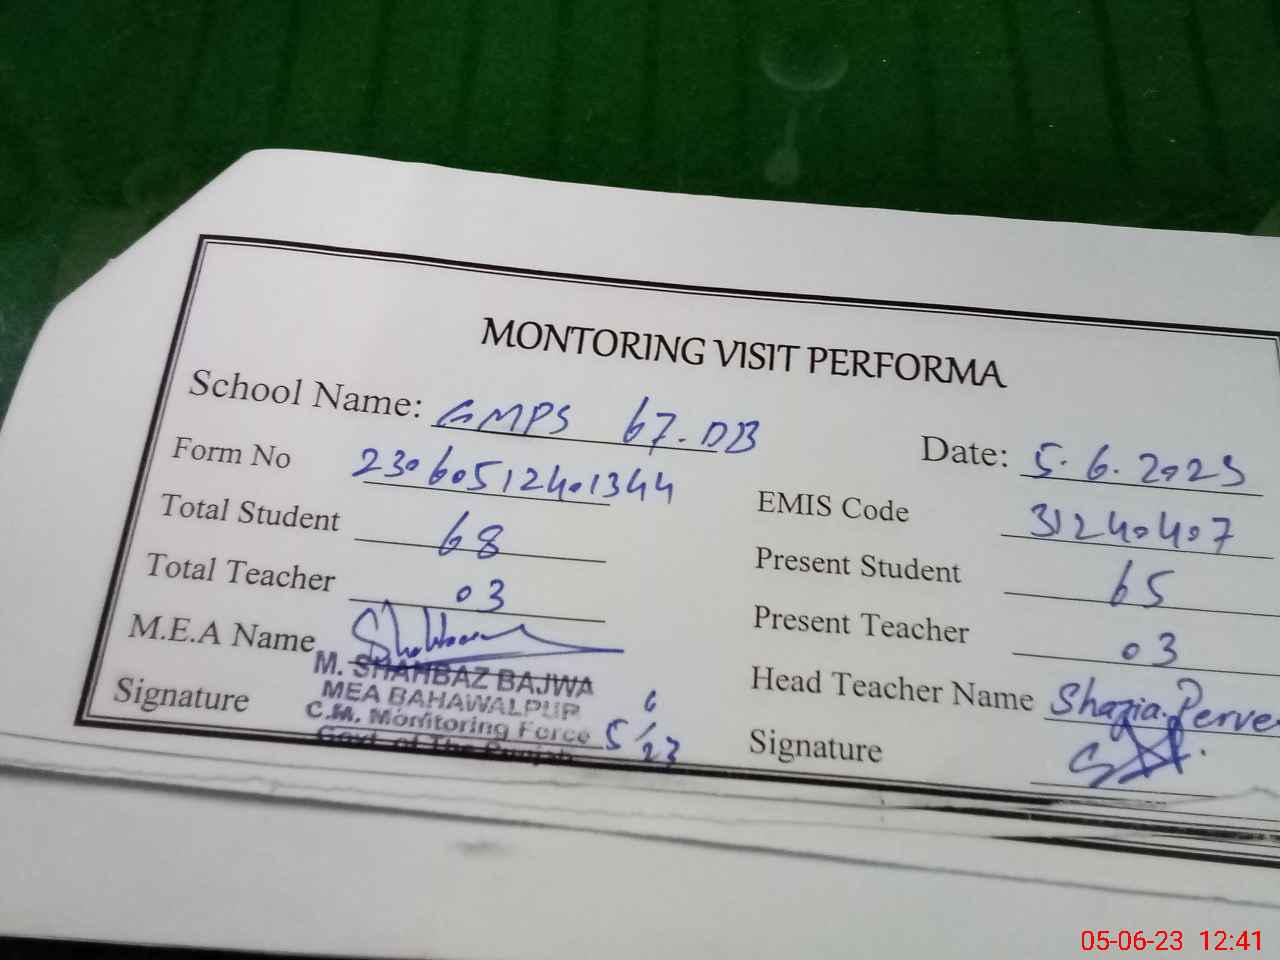 MONTORING VISIT PERFORMA
School Name: GMPS 67.DB
Date: 5.6.2023
Form No 23060512401344
EMIS Code 31240407
Total Student 68
Present Student 65
Total Teacher 03
Present Teacher 03
M.E.A Name
Head Teacher Name Shazia.Perve
M. SHAHBAZ BAJWA
MEA BAHAWALPUR
C.M. Monitoring Force
Govt. of The Punjab
Signature 5/6/23
Signature
05-06-23 12:41